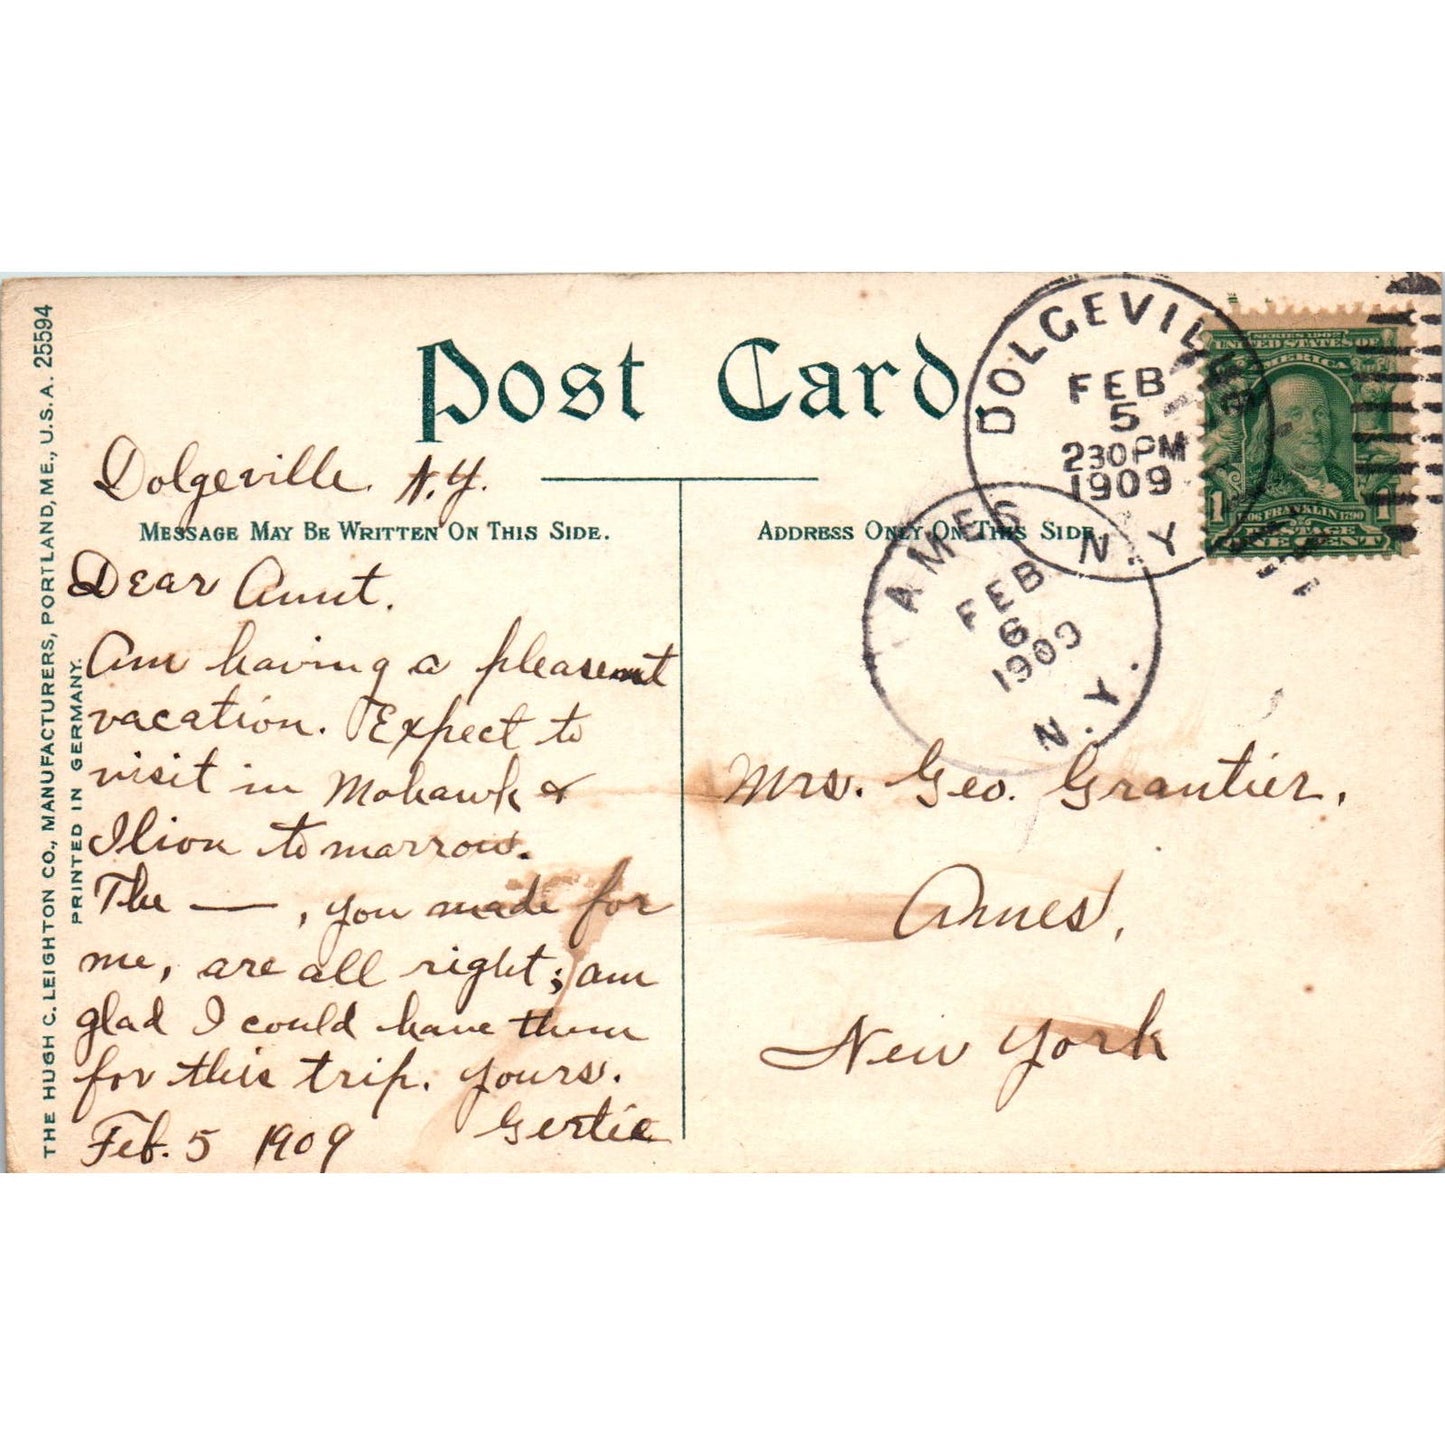 THE HUGH C. LEIGHTON CO., MANUFACTURERS, PORTLAND, ME., U.S.A. 25594
PRINTED IN GERMANY.
Post Card.
Dolgeville N.Y.
MESSAGE MAY BE WRITTEN ON THIS SIDE.
Dear Aunt.
Am having a pleasent
vacation. Expect to
visit in Mohawk &
Ilion tomarrow.
The —, you made for
me, are all right; am
glad I could have them
for this trip. Yours.
Gertie
Feb. 5 1909
ADDRESS ONLY ON THIS SIDE
DOLGEVILLE
FEB
5
230PM
1909
N.Y.
AMES
FEB
6
1909
N.Y.
SERIES 1902
UNITED STATES OF
AMERICA
1706 FRANKLIN 1790
1 1
POSTAGE
ONE CENT
Mrs. Geo. Grantier.
Ames,
New York